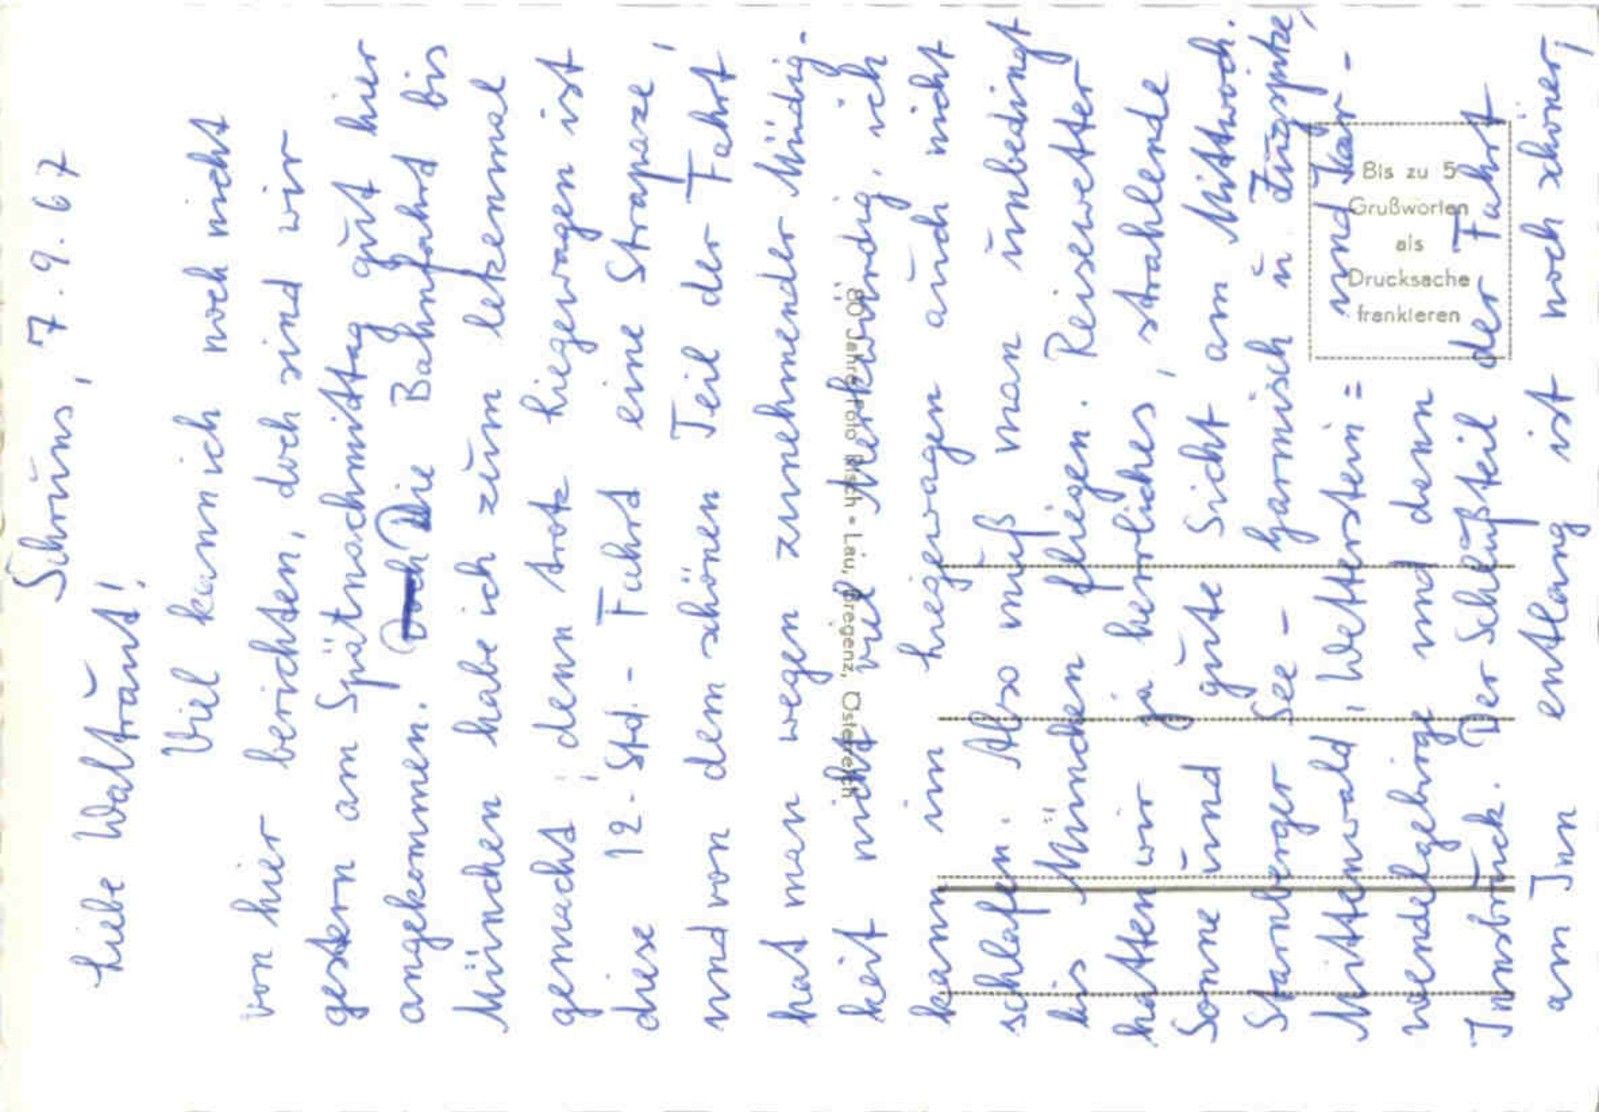 Schruns, 7.9.67
Liebe Waltraut!
Viel kann ich noch nicht
von hier berichten, doch sind wir
gestern am Spätnachmittag gut hier
angekommen. Die Bahnfahrt bis
München habe ich zum letzenmal
gemacht; denn trotz Liegewagen ist
diese 12-Std.-Fahrt eine Strapaze,
und von dem schönen Teil der Fahrt
hat man wegen zunehmender Müdig-
keit nicht viel. Merkwürdig, ich
kann im Liegewagen auch nicht
schlafen. Also muß man unbedingt
bis München fliegen. Reisewetter
hatten wir ja herrliches, strahlende
Sonne und gute Sicht am Mittwoch.
Starnberger See - Garmisch u. Zugspitze,
Mittenwald, Wetterstein= und Kar-
wendelgebirge und dann
Innsbruck. Der Schlußteil der Fahrt
am Inn entlang ist noch schöner,
Bis zu 5
Grußworten
als
Drucksache
frankieren
80 Jahre Foto Risch - Lau, Bregenz, Österreich